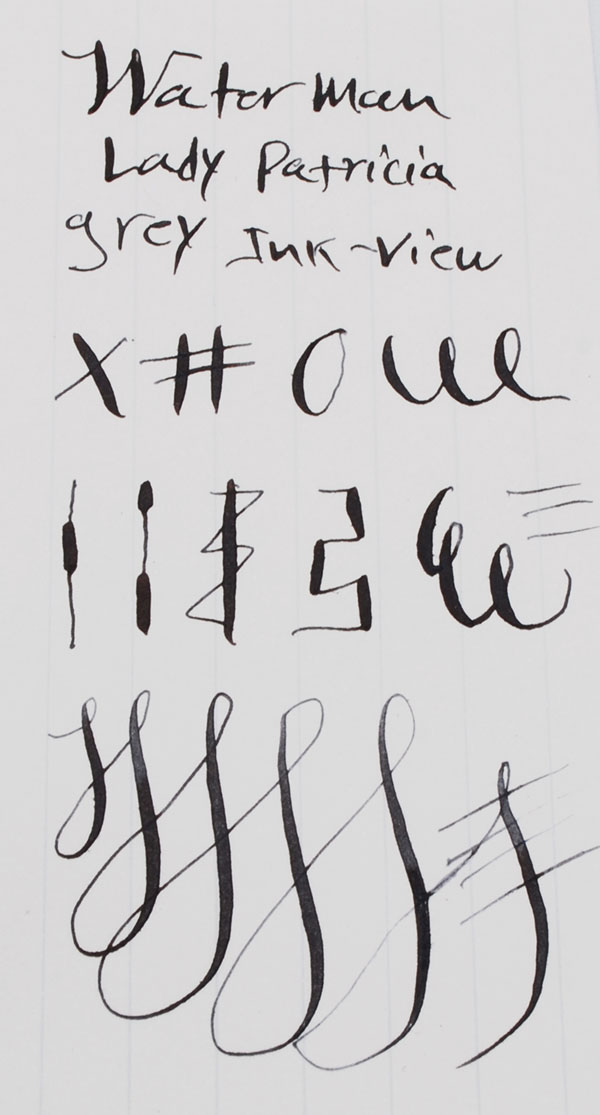 Waterman
Lady Patricia
grey Ink-View
X # O